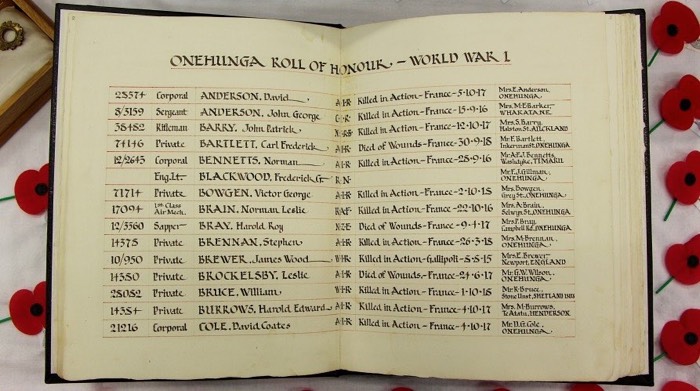 ONEHUNGA ROLL OF HONOUR - WORLD WAR I
28574 Corporal ANDERSON, David A·I·R· Killed in Action-France-5·10·17 Mrs. E. Anderson, ONEHUNGA.
8/3159 Sergeant ANDERSON, John George Killed in Action-France-15·9·16 Mrs. M·E·Barker- WHAKATANE.
38482 Rifleman BARRY, John Patrick Killed in Action-France-12·10·17 Mrs. S. Barry, St. AUCKLAND
74146 Private BARTLETT, Carl Frederick A·I·R· Died of Wounds-France-30·9·18 Mr. F. Bartlett, St. ONEHUNGA
12/2643 Corporal BENNETTS, Norman A·I·R· Killed in Action-France-28·9·16 Mr. A·E·J. Bennetts, TIMARU
Eng. Lt- BLACKWOOD, Frederick G- R·N· Mr. E. J. Gillman, ONEHUNGA.
71714 Private BOWGEN, Victor George A·I·R· Killed in Action-France-2·10·18 Mrs. Bowgen, Grey St., ONEHUNGA.
17094 1st Class Air Mech. BRAIN, Norman Leslie RAF· Killed in Action-France-22·10·16 Mrs. A. Brain, Selwyn St, ONEHUNGA
12/3560 Sapper- BRAY, Harold Roy N·Z·E· Died of Wounds-France-9·4·17 Mrs. P. Bray, Campbell Rd, ONEHUNGA.
14378 Private BRENNAN, Stephen A·I·R· Killed in Action-France-26·3·18 Mrs. M. Brennan, ONEHUNGA.
10/950 Private BREWER, James Wood W·I·R· Killed in Action-Gallipoli-8·8·15 Mrs. E. Brewer- Newport, ENGLAND
14380 Private BROCKELSBY, Leslie A·I·R· Died of Wounds-France-24·6·17 Mr. G. W. Wilson, ONEHUNGA.
28082 Private BRUCE, William W·I·R· Killed in Action-France-1·10·18 Mr. R. Bruce, SHETLAND
14384 Private BURROWS, Harold Edward A·I·R· Killed in Action-France-4·10·17 Mrs. M. Burrows, Te Atatu, HENDERSON.
21216 Corporal COLE, David Coates A·I·R· Killed in Action-France-4·10·17 Mr. D. G. Cole, ONEHUNGA.